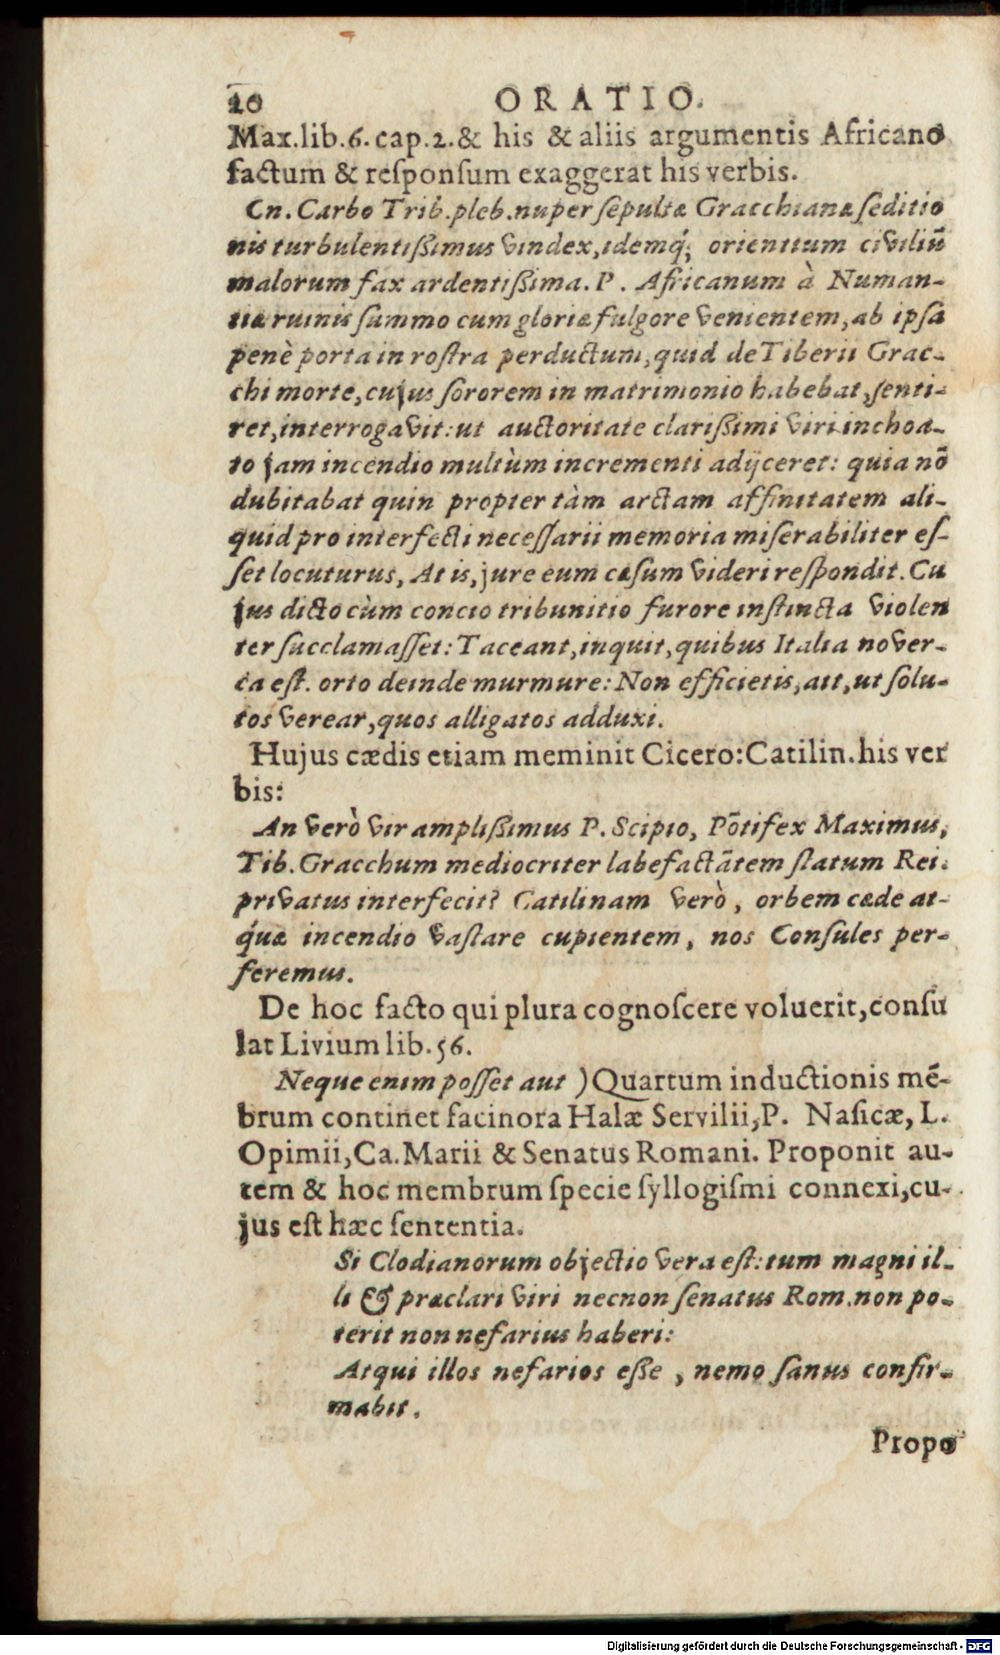 20 ORATIO.
Max.lib.6.cap.2.& his & aliis argumentis Africano
factum & reſponſum exaggerat his verbis.
Cn. Carbo Trib.pleb.nuper ſepultæ Gracchianæ ſeditio
nis turbulentißimus vindex,idemq́; orientium civiliũ
malorum fax ardentißima. P. Africanum à Numan-
tiæ ruinis ſummo cum gloriæ fulgore venientem,ab ipſa
penè porta in roſtra perductum,quid de Tiberii Grac-
chi morte,cujus ſororem in matrimonio habebat,ſenti-
ret,interrogavit:ut auctoritate clarißimi viri inchoa-
to jam incendio multùm incrementi adijceret: quia nõ
dubitabat quin propter tàm arctam affinitatem ali-
quid pro interfecti neceſſarii memoria miſerabiliter eſ-
ſet locuturus, At is,jure eum cæſum videri reſpondit.Cu
jus dicto cùm concio tribunitio furore inſtincta violen
ter ſucclamaſſet: Taceant,inquit,quibus Italia nover-
ca eſt. orto deinde murmure: Non efficietis,ait,ut ſolu-
tos verear,quos alligatos adduxi.
Hujus cædis etiam meminit Cicero:Catilin.his ver
bis:
An verò vir amplißimus P. Scipio, Põtifex Maximus,
Tib. Gracchum mediocriter labefactãtem ſtatum Rei.
privatus interfecit? Catilinam verò, orbem cæde at-
q́uæ incendio vaſtare cupientem, nos Conſules per-
feremus.
De hoc facto qui plura cognoſcere voluerit,conſu
lat Livium lib.56.
Neque enim poſſet aut )Quartum inductionis mẽ-
brum continet facinora Halæ Servilii,P. Naſicæ, L.
Opimii,Ca.Marii & Senatus Romani. Proponit au-
tem & hoc membrum ſpecie ſyllogiſmi connexi,cu-
jus eſt hæc ſententia.
Si Clodianorum objectio vera eſt:tum magni il-
li & præclari viri necnon ſenatus Rom.non po-
terit non nefarius haberi:
Atqui illos nefarios eſſe, nemo ſanus confir-
mabit.
Propo
Digitalisierung gefördert durch die Deutsche Forschungsgemeinschaft - DFG